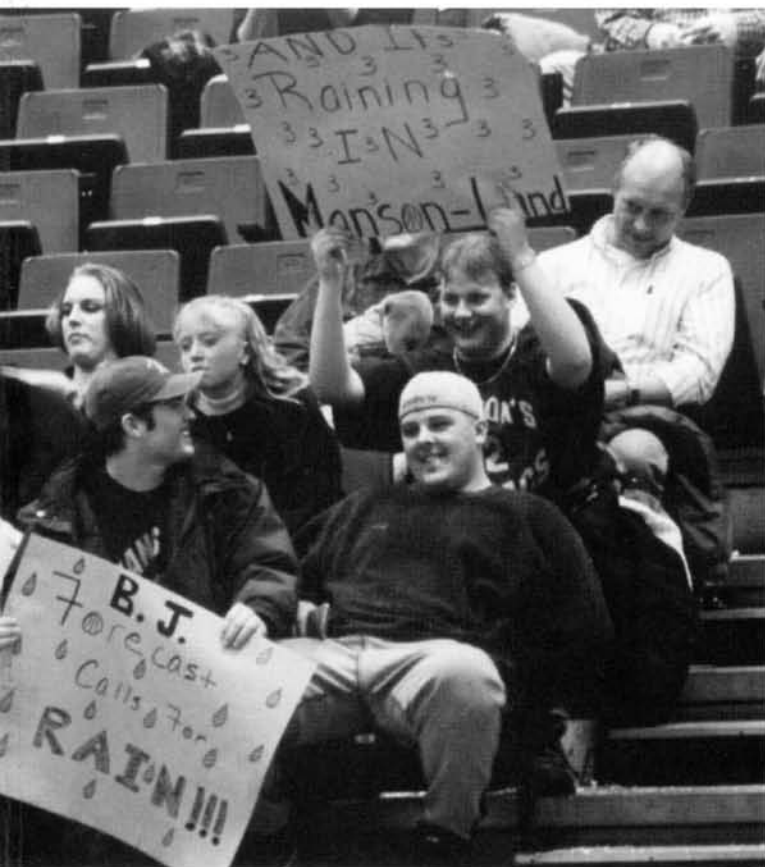 AND Its
3 3 3 3
3 Raining 3
3 3 IN 3 3 3
3 3 3 3 3
Manson-Land
OA'S
2
B.J.
Forecast
Calls For
RAIN!!!